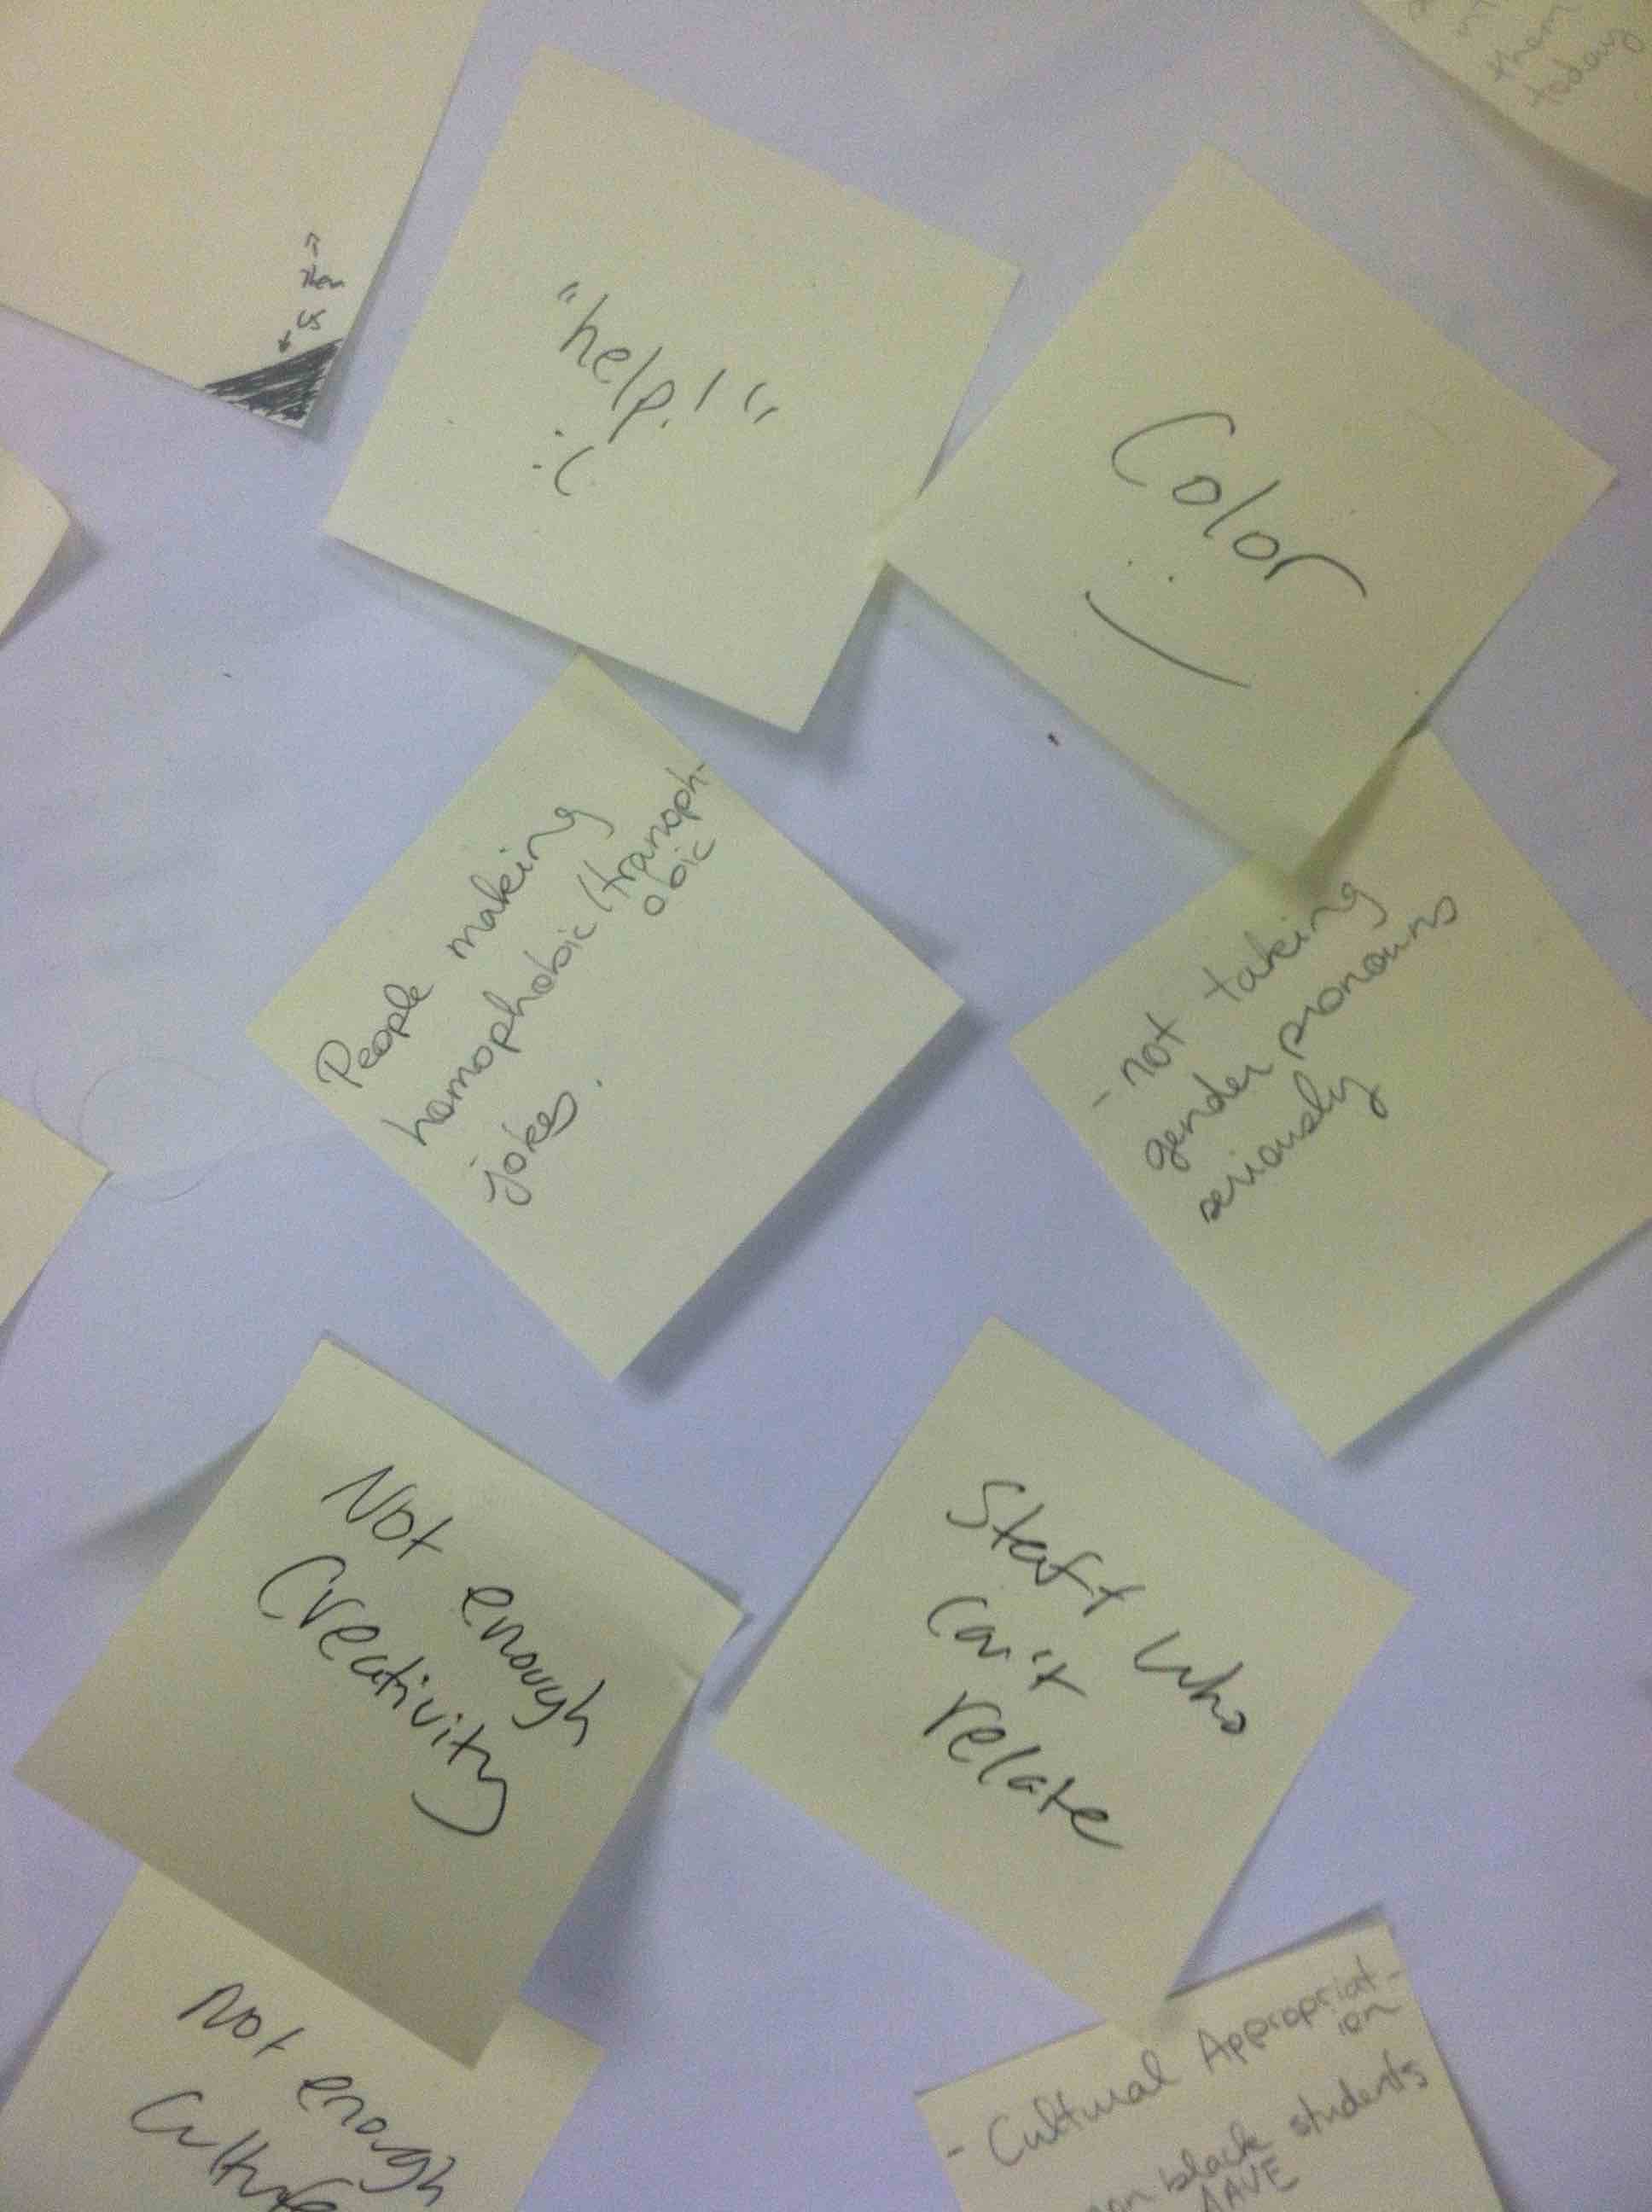 them
today
Them
US
"help!"
:(
Color
:)
People making
homophobic/tranoph-
obic
jokes.
- not taking
gender pronouns
seriously
Not enough
Creativity
Staff who
Can't
relate
Not enough
Culture
- Cultural Appropriat-
ion
black students
AAVE